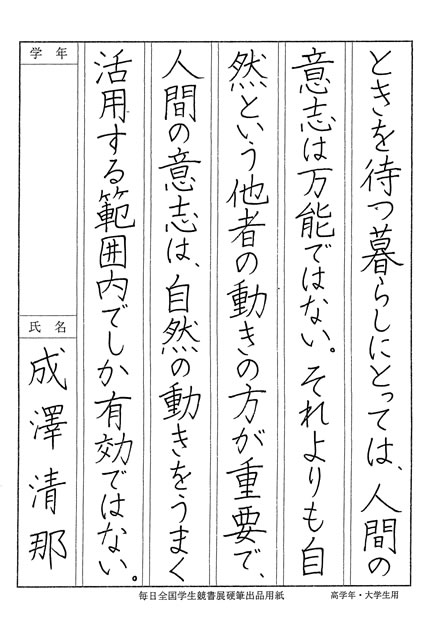 ときを待つ暮らしにとっては、人間の
意志は万能ではない。それよりも自
然という他者の動きの方が重要で、
人間の意志は、自然の動きをうまく
活用する範囲内でしか有効ではない。
学年
氏名
成澤清那
毎日全国学生競書展硬筆出品用紙
高学年・大学生用